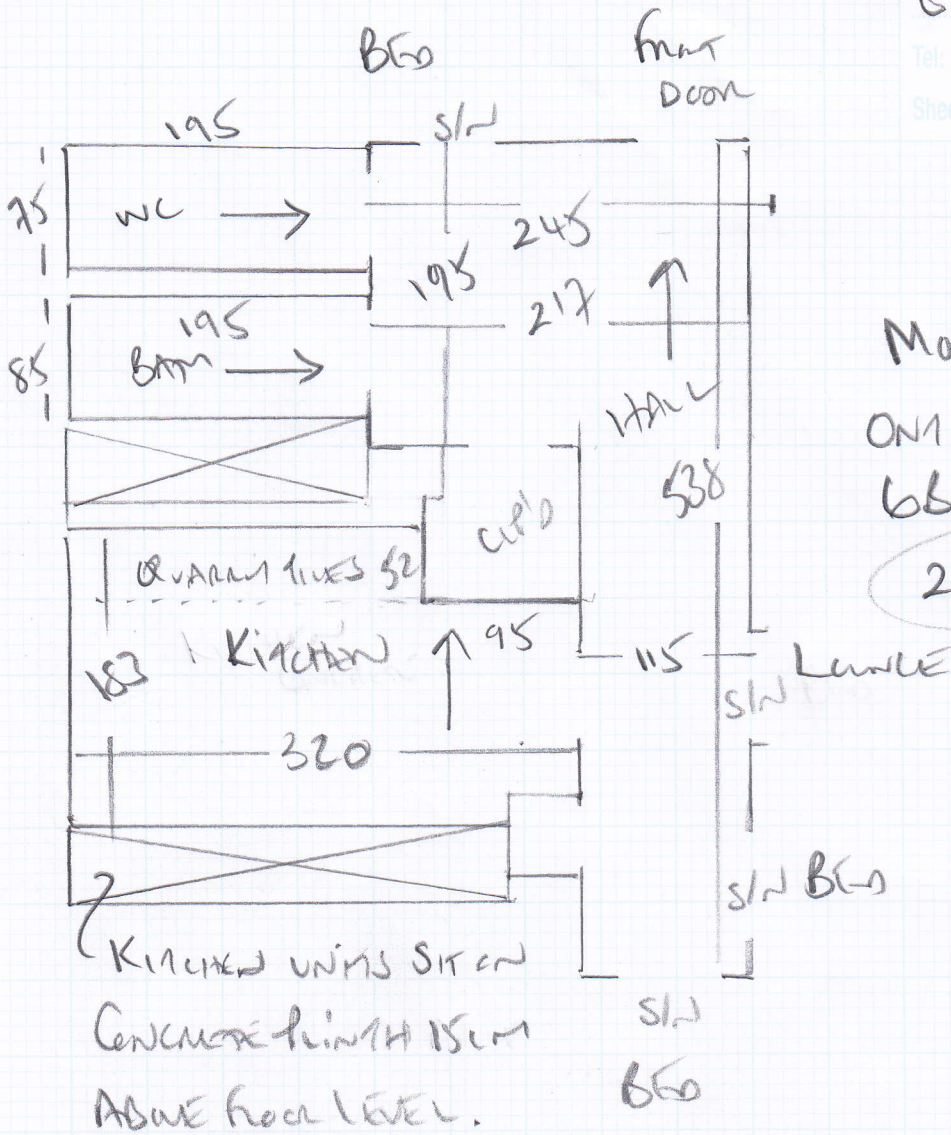 Tel:
BED
FRONT
DOOR
Shee
195
S/N
75
WC
245
195
217
195
85
BATH
HALL
538
CUP'D
QUARRY TILES 52
KITCHEN
95
183
115
LOUNGE
S/N
320
S/N BED
KITCHEN UNITS SIT ON
CONCRETE PLINTH 15CM
ABOVE FLOOR LEVEL.
S/N
BED
Mo
ON1
6B
2